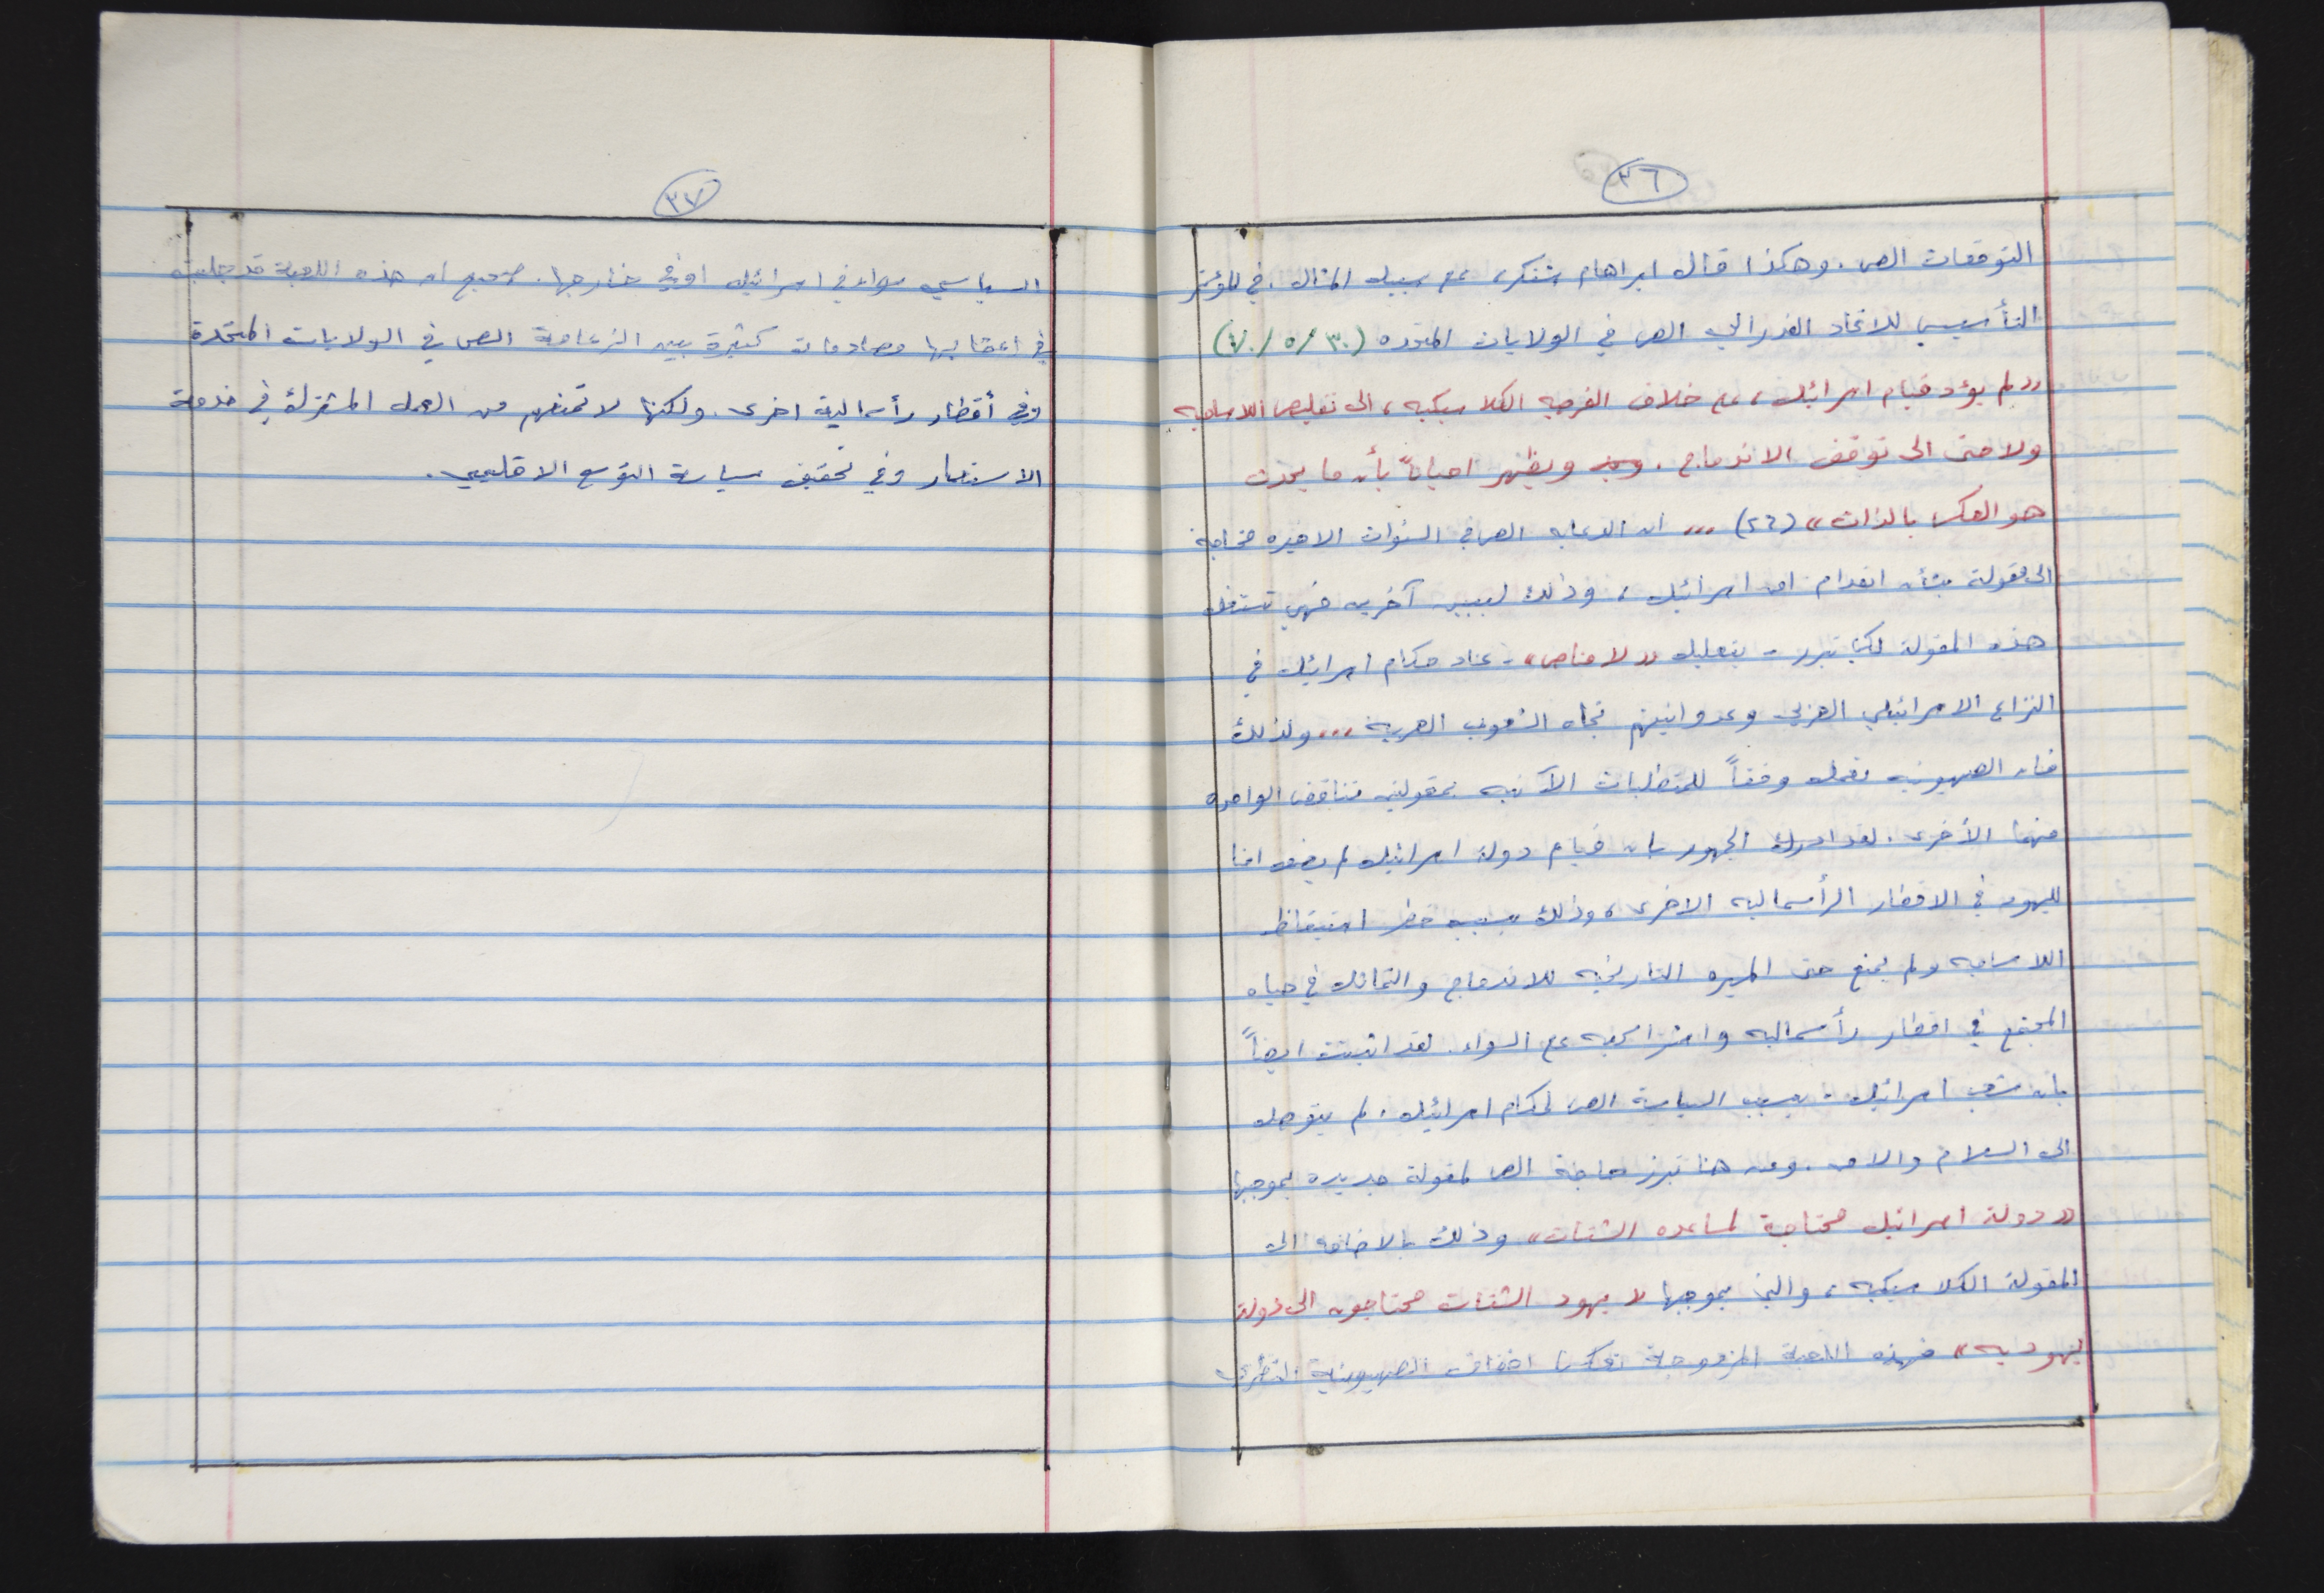 ٣٦
التوقعات الص. وهكذا قال ابراهام شنكر، على سبيل المثال، في المؤتمر
التأسيسي للاتحاد الفدرالي الص في الولايات المتحده (٣٠/٥/٧٠)
"لم يؤد قيام اسرائيل، على خلاف الفرضيه الكلاسيكيه، الى تقليص اللاساميه
ولا حتى الى توقف الاندماج. ويظهر احياناً بأن ما يحدث
هو العكس بالذات" (٢٦) ... ان الدعايه الص في السنوات الاخيره محتاجة
الى مقولة بشأن انعدام امن اسرائيل، وذلك لسببين آخرين فهي تستغل
هذه المقولة لكي تبرر - بتعليل "لا مناص" - عناد حكام اسرائيل في
النزاع الاسرائيلي العربي وعدوانيتهم تجاه الشعوب العربية ... ولذلك
فان الصهيونيه تعمل وفقاً للمتطلبات الآنيه بمقولتين تناقض الواحده
منهما الأخرى. لقد ادرك الجمهور بان قيام دولة اسرائيل لم يضف امنا
لليهود في الاقطار الرأسماليه الاخرى، وذلك بسبب خطر استيقاظ
اللاساميه ولم يمنع حتى المسيره التاريخيه للاندماج والتماثل في حياه
المجتمع في اقطار رأسماليه واشتراكيه على السواء. لقد اثبتت ايضاً
بان شعب اسرائيل، بسبب السياسة الص لحكام اسرائيل، لم يتوصل
الى السلام والامن. ومن هنا تبرز حاجة الص لمقولة جديده بموجبها
"دولة اسرائيل محتاجة لمساعده الشتات" وذلك بالاضافه الى
المقولة الكلاسيكيه، والتي بموجبها "يهود الشتات محتاجون الى دولة
يهوديه" فهذه اللعبة المزدوجة تعكس اخفاق الصهيونية النظري
٣٧
السياسي سواء في اسرائيل او في خارجها. صحيح ان هذه اللعبة قد تجلب
في اعقابها مصادمات كثيرة بين الزعامة الص في الولايات المتحدة
وفي أقطار رأسمالية اخرى. ولكنها لا تمنعهم من العمل المشترك في خدمة
الاستعمار وفي تحقيق سياسة التوسع الاقليمي.